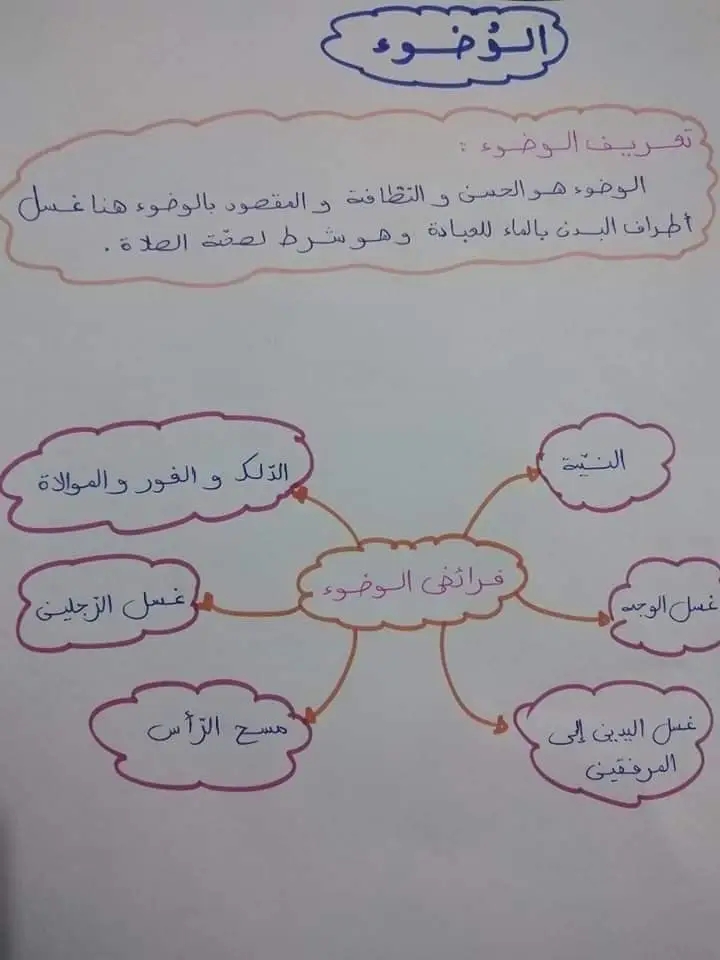 الـوُضـوء
تعـريـف الـوضـوء :
الـوضوء هـو الحسن و النّظافة و المقصود بالوضوء هنا غسل
أطراف البدن بالماء للعبادة وهـو شرط لصحّة الصلاة .
فـرائض الـوضـوء
النـيّة
غسل الوجه
غسل اليدين إلى
المرفقين
مسح الرّأس
غسل الرّجلين
الدّلك و الفور و الموالاة